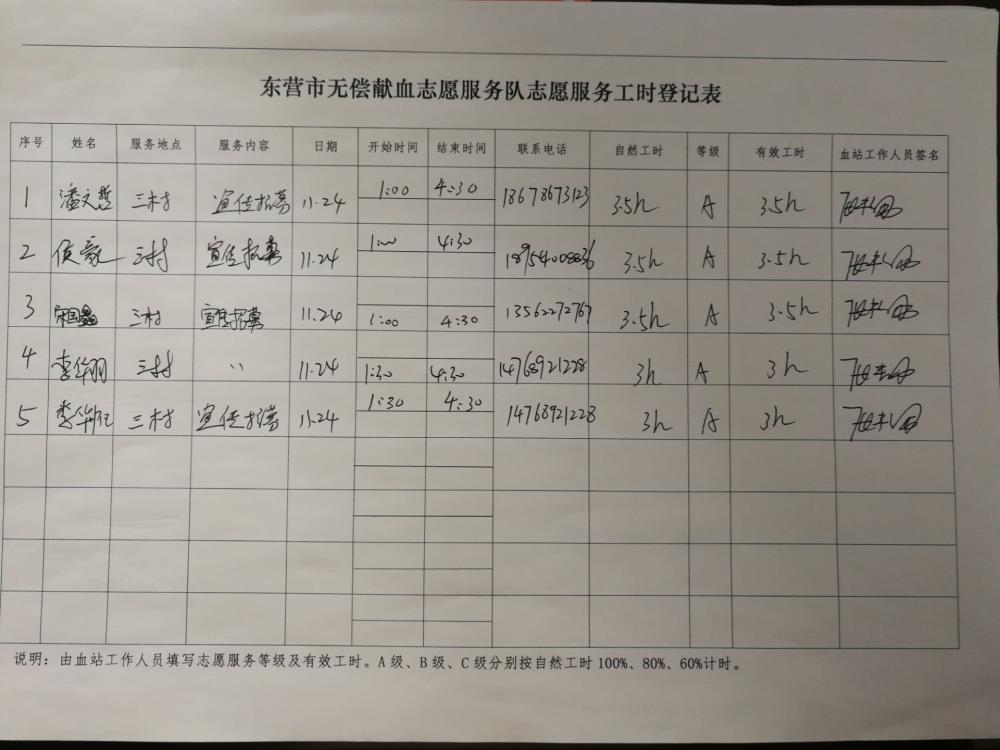 东营市无偿献血志愿服务队志愿服务工时登记表
序号 姓名 服务地点 服务内容 日期 开始时间 结束时间 联系电话 自然工时 等级 有效工时 血站工作人员签名
1 潘文哲 三村 宣传招募 11.24 1:00 4:30 18678673123 3.5h A 3.5h
2 侯毅 三村 宣传招募 11.24 1:00 4:30 18954008836 3.5h A 3.5h
3 三村 宣传招募 11.24 1:00 4:30 13562272767 3.5h A 3.5h
4 李华羽 三村 〃 11.24 1:30 4:30 14768921228 3h A 3h
5 李华 三村 宣传招募 11.24 1:30 4:30 14768921228 3h A 3h
说明：由血站工作人员填写志愿服务等级及有效工时。A级、B级、C级分别按自然工时100%、80%、60%计时。